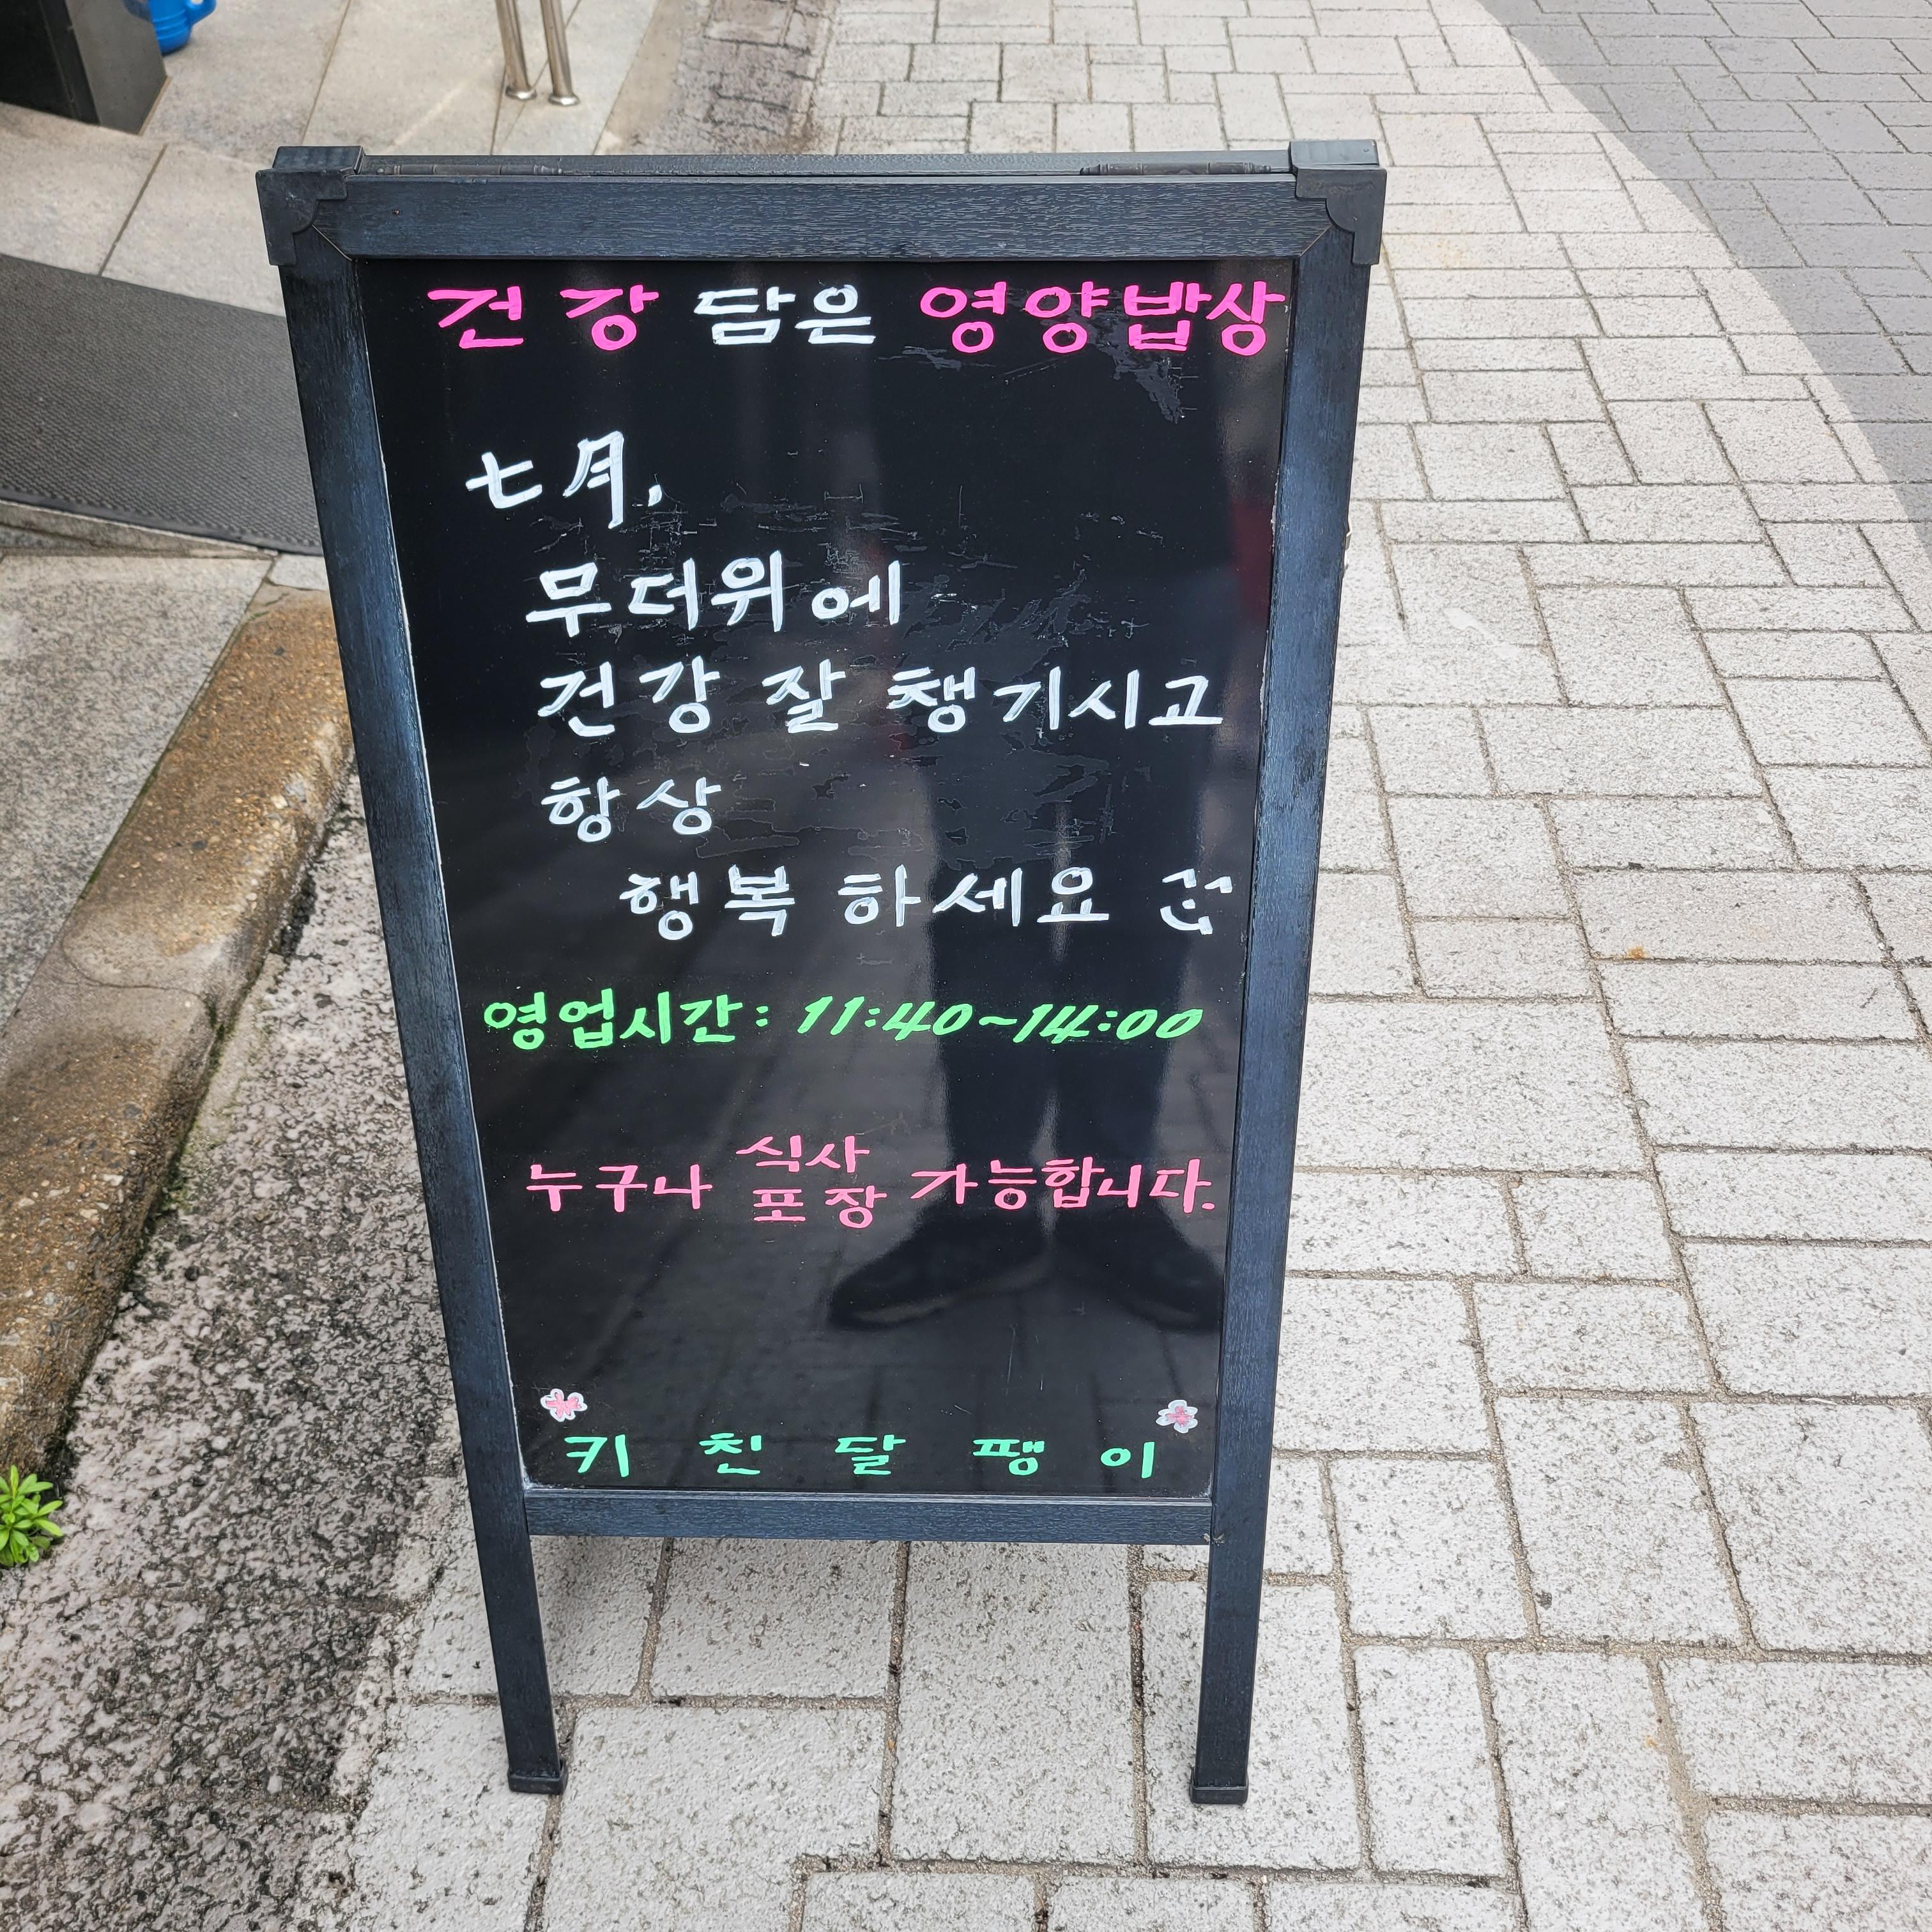 건강 담은 영양밥상
七月,
무더위에
건강 잘 챙기시고
항상
행복 하세요
영업시간: 11:40~14:00
누구나 식사 포장 가능합니다.
키친달팽이